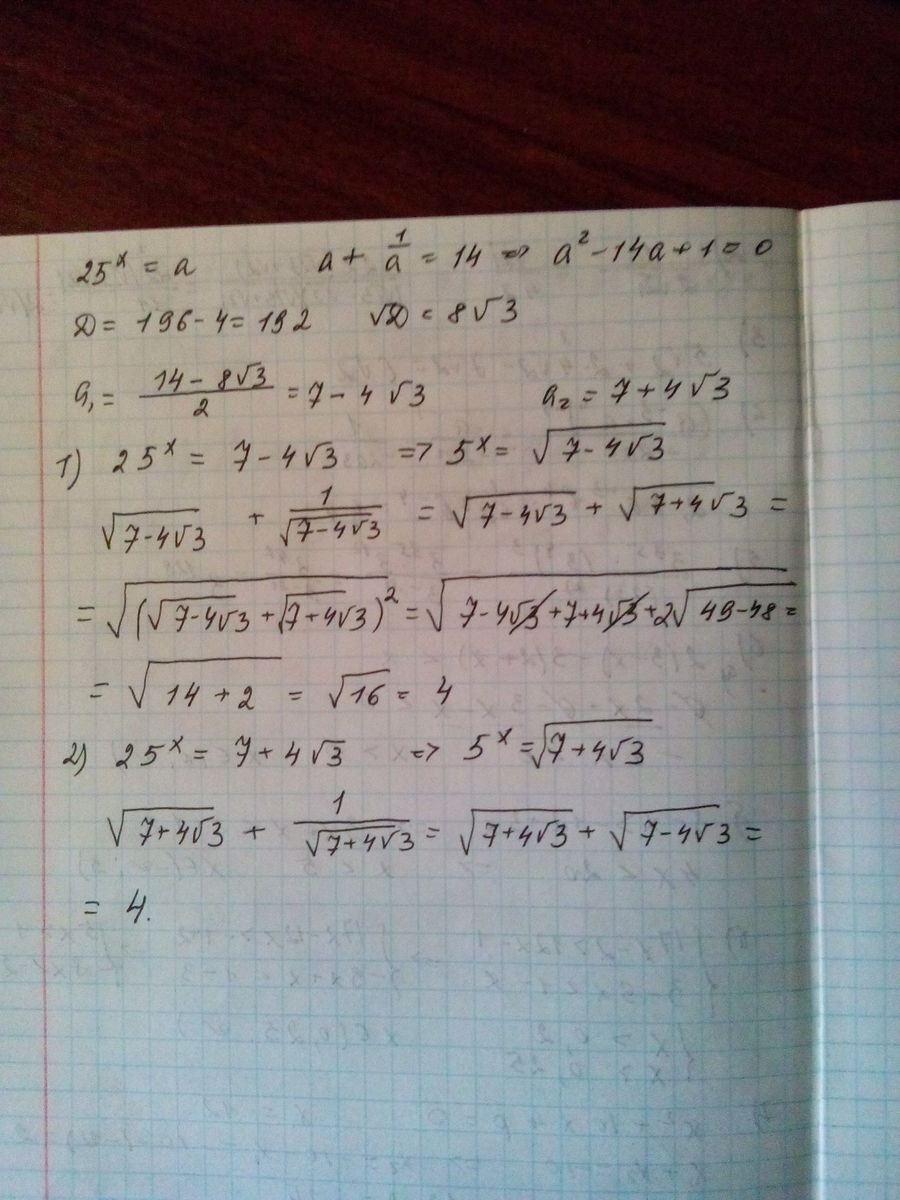 25ˣ = a   a + 1/a = 14 => a² - 14a + 1 = 0
D = 196 - 4 = 192   √D = 8√3
a₁ = (14 - 8√3)/2 = 7 - 4√3   a₂ = 7 + 4√3
1) 25ˣ = 7 - 4√3 => 5ˣ = √(7 - 4√3)
√(7-4√3) + 1/√(7-4√3) = √(7-4√3) + √(7+4√3) =
= √((√(7-4√3) + √(7+4√3))²) = √(7-4√3+7+4√3+2√(49-48)) =
= √(14 + 2) = √16 = 4
2) 25ˣ = 7 + 4√3 => 5ˣ = √(7+4√3)
√(7+4√3) + 1/√(7+4√3) = √(7+4√3) + √(7-4√3) =
= 4.